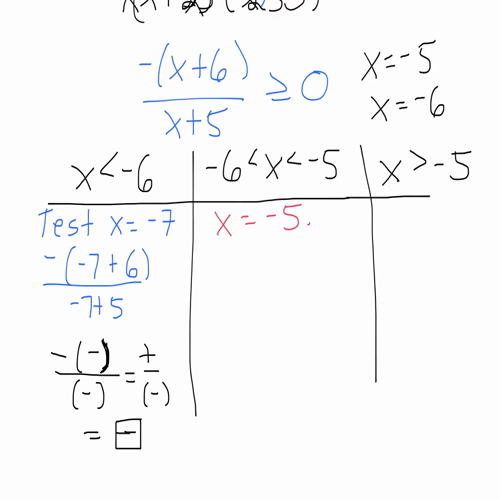 -(x+6)/(x+5) ≥ 0
x=-5
x=-6
x<-6
-6<x<-5
x>-5
Test x=-7
-(-7+6)/(-7+5)
x=-5.
-(-)/(-) = +/(-)
= -